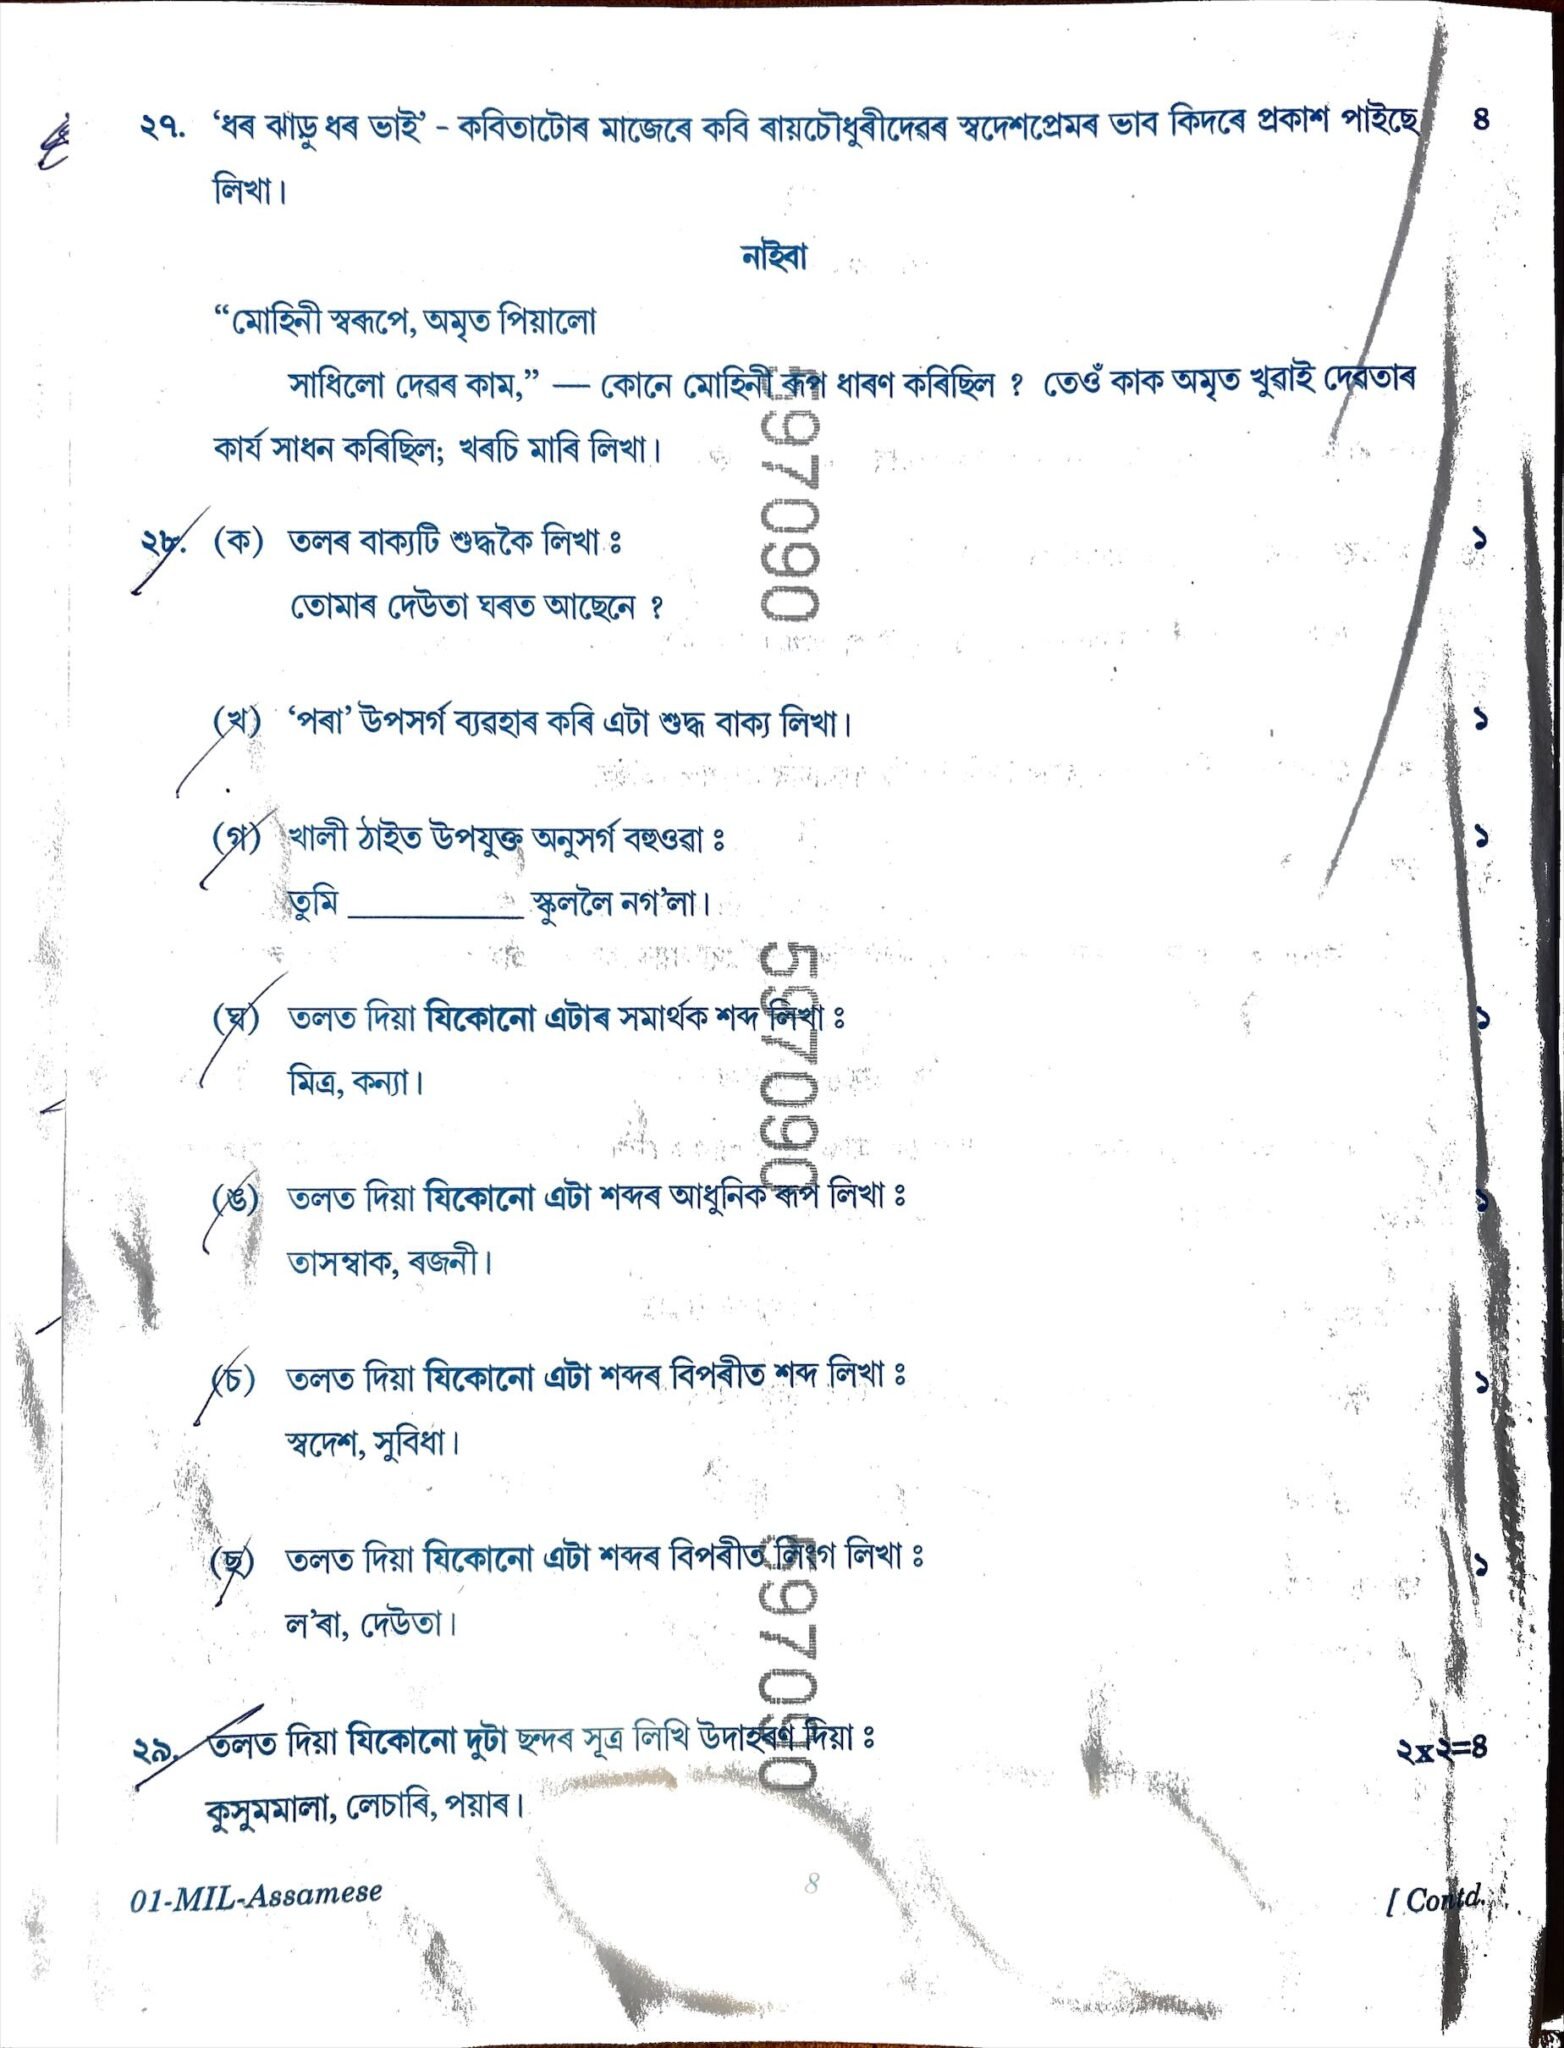 ২৭. ‘ধৰ ঝাড়ু ধৰ ভাই’ - কবিতাটোৰ মাজেৰে কবি ৰায়চৌধুৰীদেৱৰ স্বদেশপ্ৰেমৰ ভাব কিদৰে প্ৰকাশ পাইছে ৪
লিখা।
নাইবা
“মোহিনী স্বৰূপে, অমৃত পিয়ালো
সাধিলো দেৱৰ কাম,” — কোনে মোহিনী ৰূপ ধাৰণ কৰিছিল ? তেওঁ কাক অমৃত খুৱাই দেৱতাৰ
কাৰ্য সাধন কৰিছিল; খৰচি মাৰি লিখা।
২৮. (ক) তলৰ বাক্যটি শুদ্ধকৈ লিখা ঃ ১
তোমাৰ দেউতা ঘৰত আছেনে ?
(খ) ‘পৰা’ উপসৰ্গ ব্যৱহাৰ কৰি এটা শুদ্ধ বাক্য লিখা। ১
(গ) খালী ঠাইত উপযুক্ত অনুসৰ্গ বহুওৱা ঃ ১
তুমি __________ স্কুললৈ নগ’লা।
(ঘ) তলত দিয়া যিকোনো এটাৰ সমাৰ্থক শব্দ লিখা ঃ ১
মিত্ৰ, কন্যা।
(ঙ) তলত দিয়া যিকোনো এটা শব্দৰ আধুনিক ৰূপ লিখা ঃ ১
তাসম্বাক, ৰজনী।
(চ) তলত দিয়া যিকোনো এটা শব্দৰ বিপৰীত শব্দ লিখা ঃ ১
স্বদেশ, সুবিধা।
(ছ) তলত দিয়া যিকোনো এটা শব্দৰ বিপৰীত লিংগ লিখা ঃ ১
ল’ৰা, দেউতা।
২৯. তলত দিয়া যিকোনো দুটা ছন্দৰ সূত্ৰ লিখি উদাহৰণ দিয়া ঃ ২x২=৪
কুসুমমালা, লেচাৰি, পয়াৰ।
01-MIL-Assamese 8 [ Contd.
597090
597090
597090